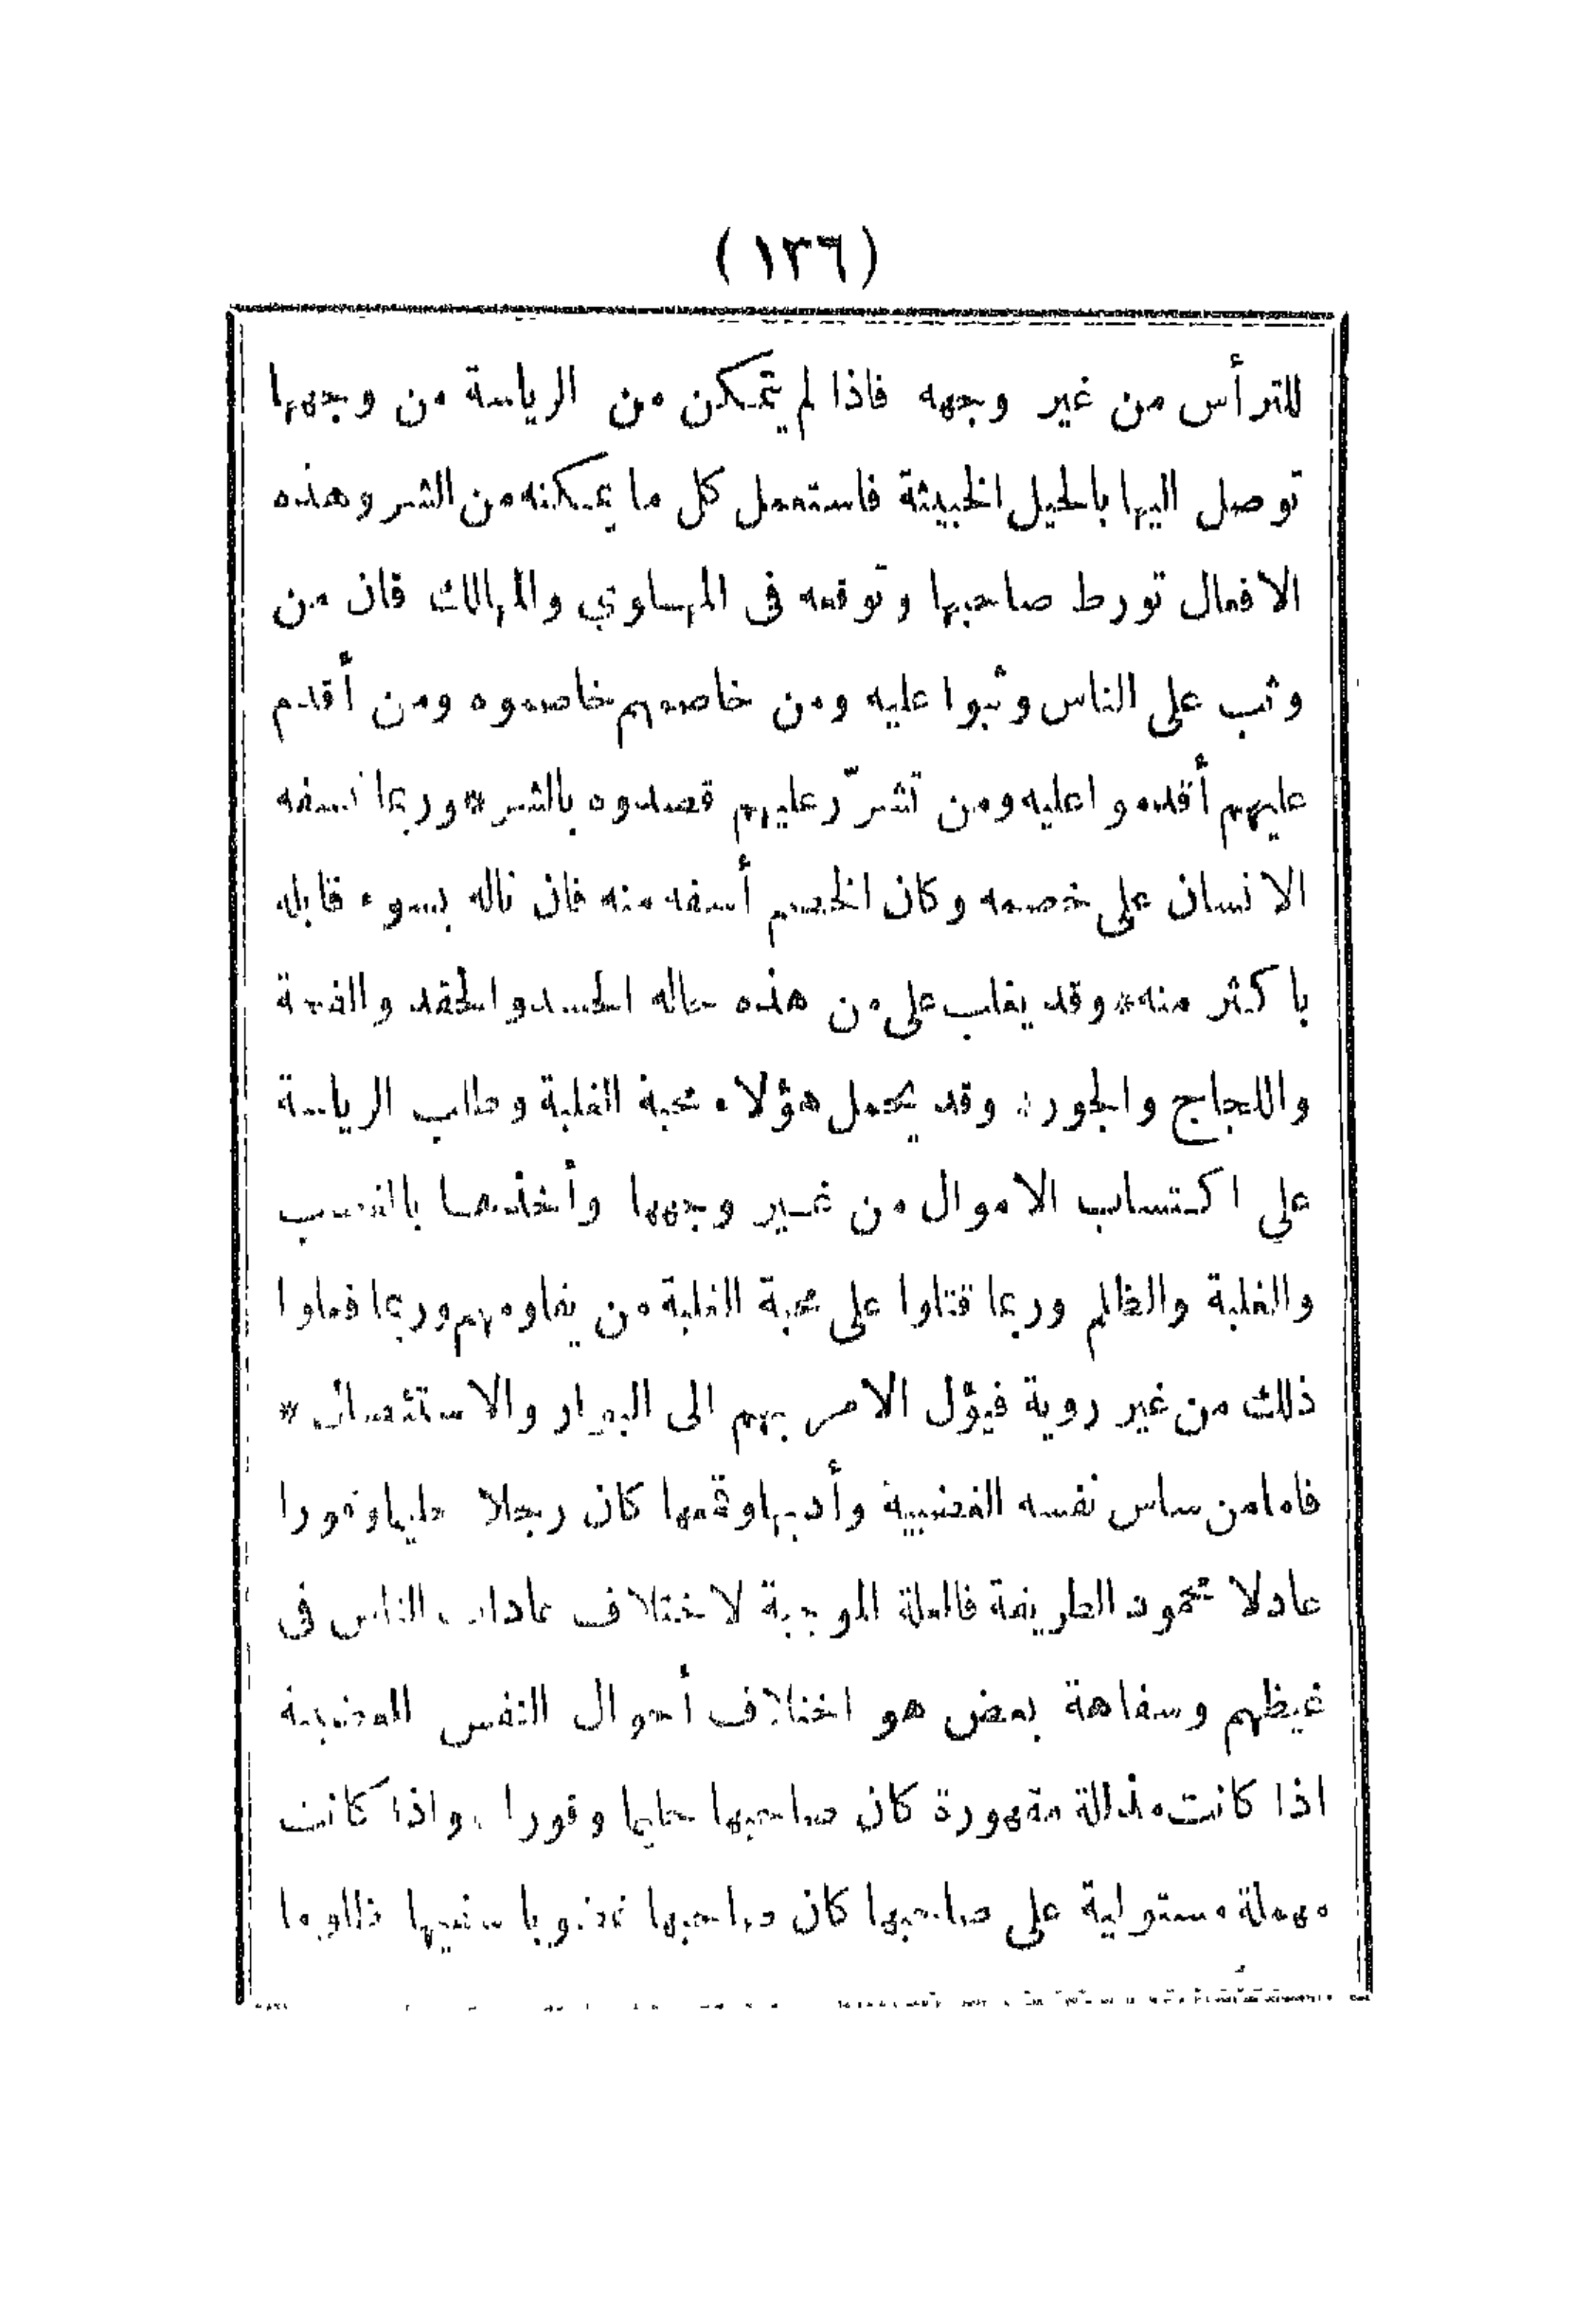 (١٣٦)
للترأس من غير وجهه فاذا لم يتمكن من الرياسة من وجهها
توصل اليها بالحيل الخبيثة فاستعمل كل ما يمكنه من الشر وهذه
الافعال تورط صاحبها وتوقعه فى المهاوي والمهالك فان من
وثب على الناس وثبوا عليه ومن خاصمهم خاصموه ومن أقدم
عليهم أقدموا عليه ومن تشرّر عليهم قصدوه بالشر * وربما تسفه
الانسان على خصمه وكان الخصم أسفه منه فان ناله بسوء قابله
باكثر منه * وقد يغلب على من هذه حاله الحسد والحقد والقحة
واللجاج والجور : وقد يحمل هؤلاء محبة الغلبة وطلب الرياسة
على اكتساب الاموال من غير وجهها وأخذها بالغصب
والغلبة والظلم وربما قتلوا على محبة الغلبة من يقاومهم وربما فعلوا
ذلك من غير روية فيؤل الامر بهم الى البوار والاستئصال *
فاما من ساس نفسه الغضبية وأدبها وقمعها كان رجلا حليما وقورا
عادلا محمود الطريقة فالعلة الموجبة لاختلاف عادات الناس فى
غيظهم وسفاهة بعض هو اختلاف أحوال النفس الغضبية
اذا كانت مذللة مقهورة كان صاحبها حليما وقورا . واذا كانت
مهملة مستولية على صاحبها كان صاحبها غضوبا سفيها ظلوما